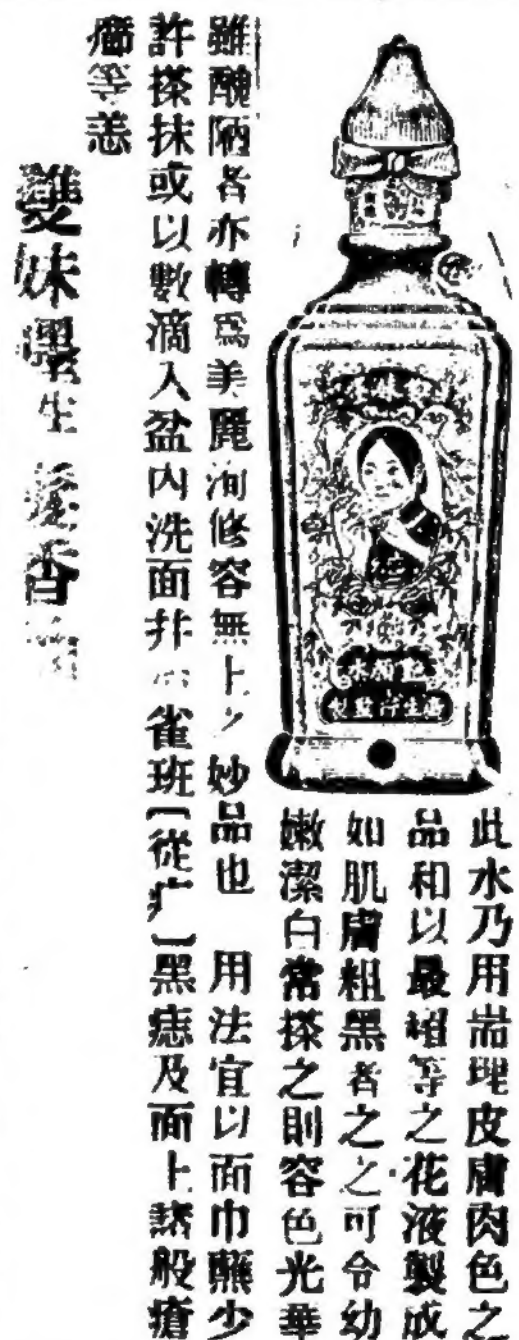 雙妹嘜
艷顏水
廣生行監製
此水乃用耑理皮膚肉色之
品和以最超等之花液製成
如肌膚粗黑者之之可令幼
嫩潔白常搽之則容色光華
雖醜陋者亦轉爲美麗洵修容無上之妙品也 用法宜以面巾蘸少
許搽抹或以數滴入盆內洗面并 雀班[從疒]黑痣及面上諸般瘡
癤等恙
雙妹嘜生髮香